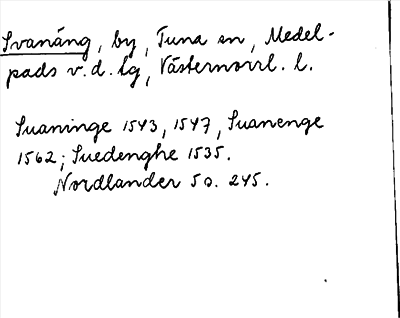 Svanäng, by, Tuna sn, Medel-
pads v. d. lg, Västernorrl. l.
Suaninge 1543, 1547, Suanenge
1562; Suedenghe 1535.
Nordlander 5 s. 245.